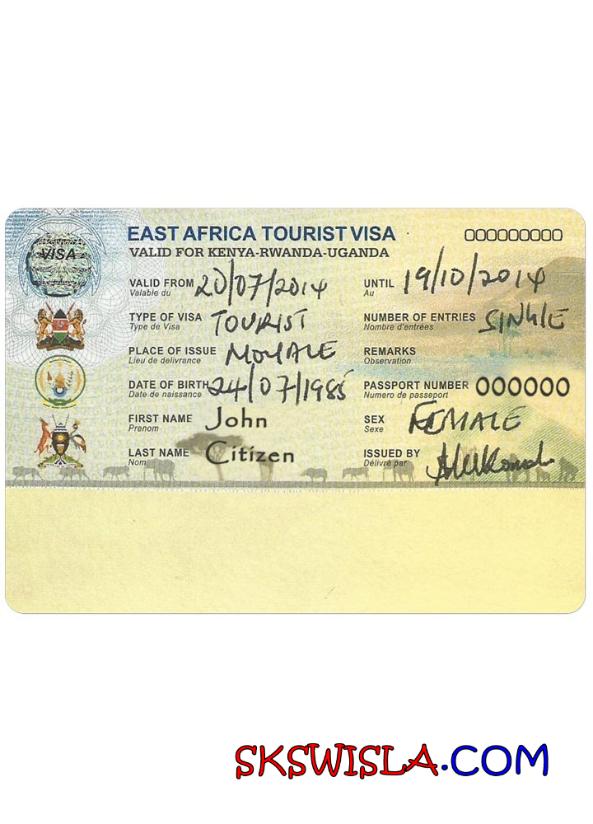 EAST AFRICA TOURIST VISA
000000000
VISA
VALID FOR KENYA-RWANDA-UGANDA
VALID FROM 20/07/2014 UNTIL 19/10/2014
Valable du Au
TYPE OF VISA TOURIST NUMBER OF ENTRIES SINGLE
Type de Visa Nombre d'entrées
PLACE OF ISSUE MOYALE REMARKS
Lieu de delivrance Observation
DATE OF BIRTH 24/07/1985 PASSPORT NUMBER 000000
Date de naissance Numero de passeport
FIRST NAME John SEX FEMALE
Prenom Sexe
LAST NAME Citizen ISSUED BY
Nom Délivré par
SKSWISLA.COM